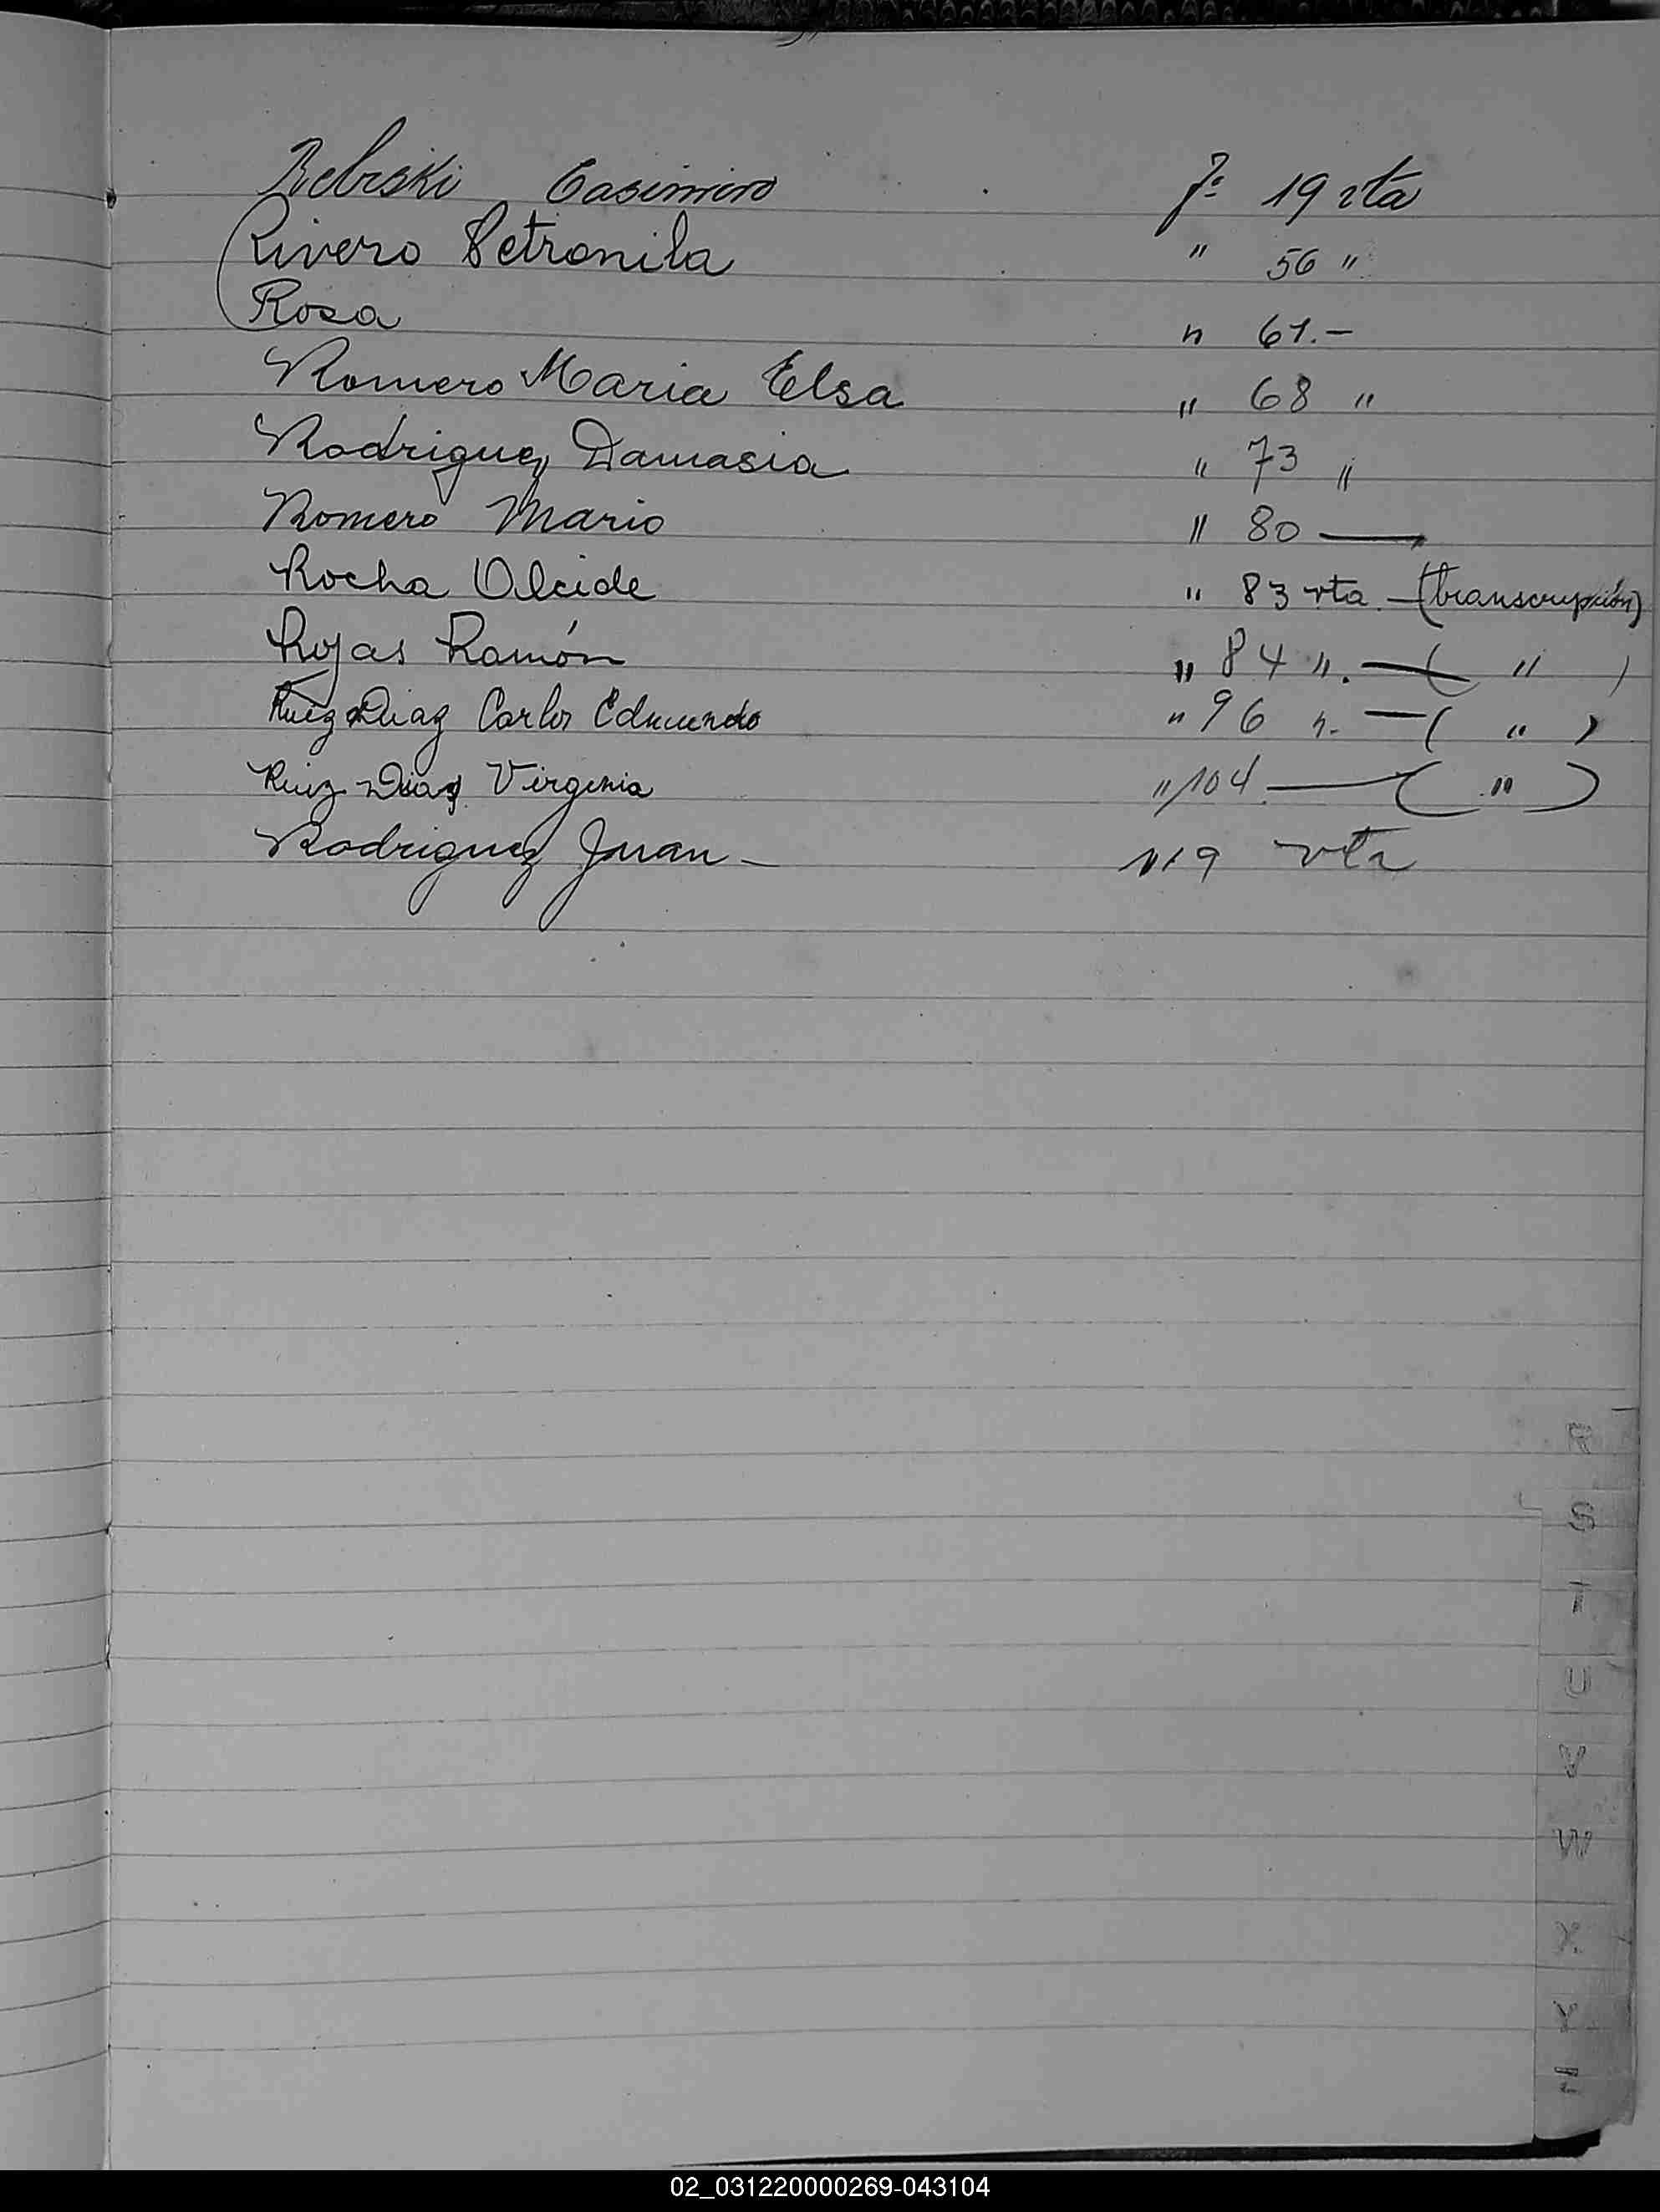 Rebeski Casimiro Fº 19 vta
Rivero Petronila " 56 "
Rosa " 61.-
Romero Maria Elsa " 68 "
Rodriguez Damasia " 73 "
Romero Mario " 80 —
Rocha Alcide " 83 vta. - (transcripción)
Rojas Ramón " 84 ". — ( " )
Ruiz Diaz Carlos Edmundo " 96 ". — ( " )
Ruiz Diaz Virginia " 104. — ( " )
Rodriguez Juan - 119 vta
R
S
T
U
V
W
X
Y
Z
02_031220000269-043104